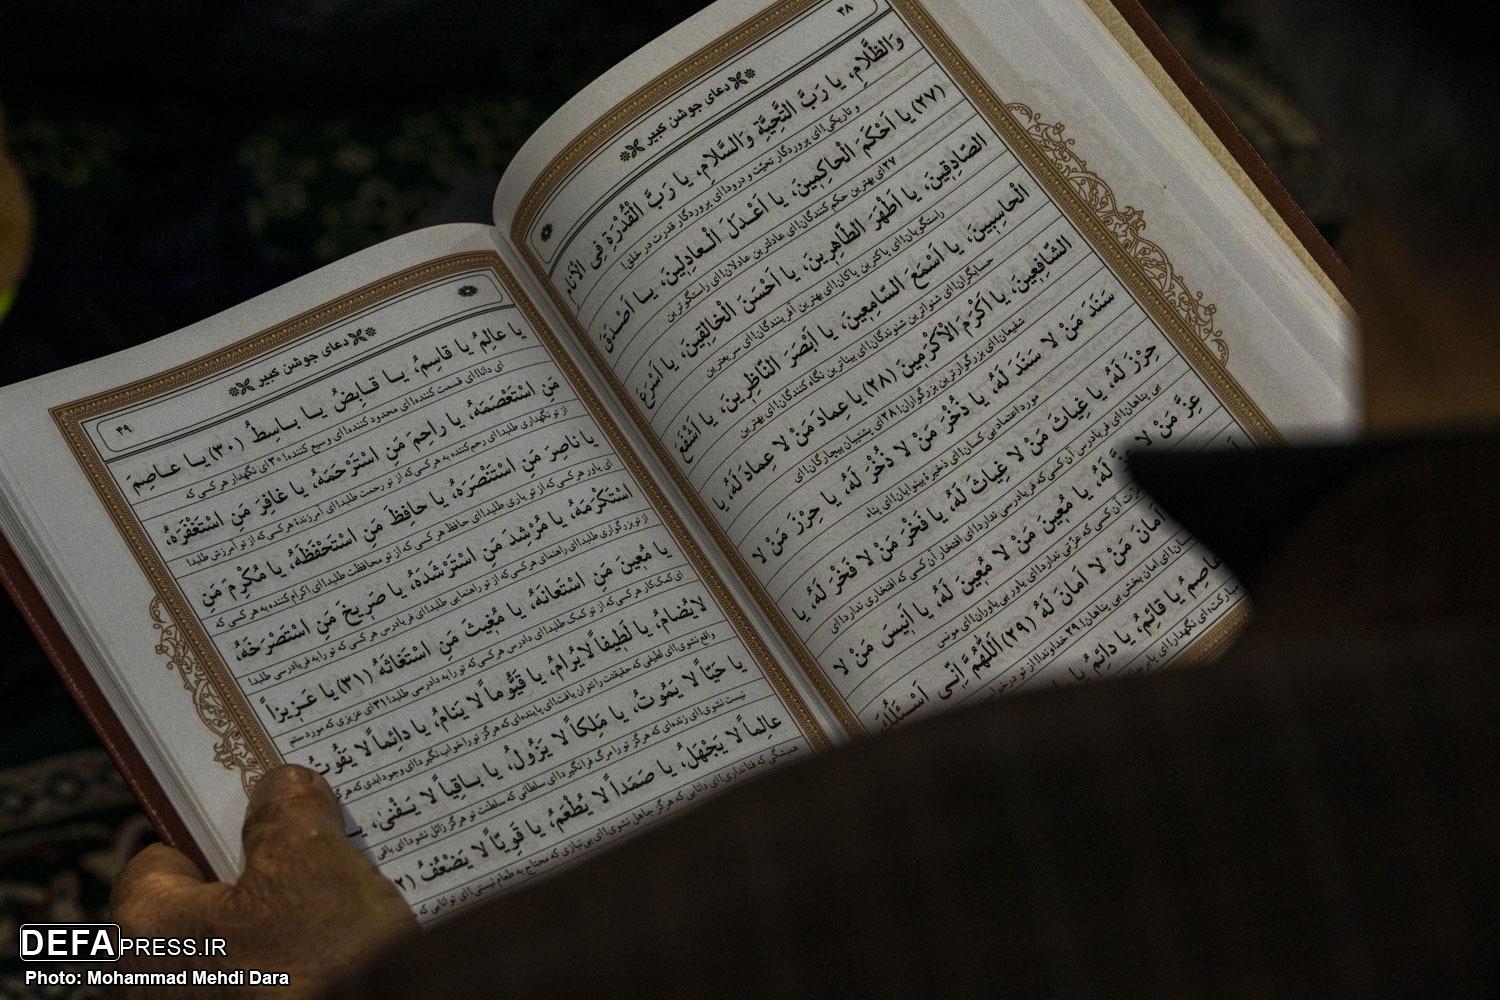 ۳۸
دعای جوشن کبیر
وَالظَّلامِ، یا رَبَّ التَّحِیَّةِ وَالسَّلامِ، یا رَبَّ الْقُدْرَةِ فِی الْأَنامِ
و تاریکی ای پروردگار تحیّت و درود ای پروردگار قدرت در خلق!
(۲۷) یا اَحْکَمَ الْحاکِمینَ، یا اَعْدَلَ الْعادِلینَ، یا اَصْدَقَ
۲۷ ای بهترین حکم کنندگان ای عادلترین عادلان ای راستگوترین
الصّادِقینَ، یا اَطْهَرَ الطّاهِرینَ، یا اَحْسَنَ الْخالِقینَ، یا اَسْرَعَ
راستگویان ای پاکترین پاکان ای بهترین آفرینندگان ای سریعترین
الْحاسِبینَ، یا اَسْمَعَ السّامِعینَ، یا اَبْصَرَ النّاظِرینَ، یا اَشْفَعَ
حسابگران ای شنواترین شنوندگان ای بیناترین نگاه کنندگان ای بهترین
الشّافِعینَ، یا اَکْرَمَ الْاَکْرَمینَ (۲۸) یا عِمادَ مَنْ لا عِمادَ لَهُ، یا
شفیعان ای بزرگوارترین بزرگواران! ۲۸ ای پشتیبان بیچارگان ای
سَنَدَ مَنْ لا سَنَدَ لَهُ، یا ذُخْرَ مَنْ لا ذُخْرَ لَهُ، یا حِرْزَ مَنْ لا
مورد اعتماد بی کسان ای ذخیره بینوایان ای پناه
حِرْزَ لَهُ، یا غِیاثَ مَنْ لا غِیاثَ لَهُ، یا فَخْرَ مَنْ لا فَخْرَ لَهُ، یا
بی پناهان ای فریادرس آن کسی که فریادرسی ندارد ای افتخار آن کس که افتخاری ندارد ای
عِزَّ مَنْ لا لَهُ، یا مُعینَ مَنْ لا مُعینَ لَهُ، یا اَنیسَ مَنْ لا
عزت آن کسی که عزّتی ندارد ای یاور بی یاوران ای مونس
اَمانَ مَنْ لا اَمانَ لَهُ (۲۹) اَللّهُمَّ اِنّی اَسْئَلُکَ
ای امان بخش بی پناهان! ۲۹ خداوندا! از تو درخو
عاصِمُ یا قائِمُ، یا دائِمُ یا
ای نگهدار ای
۳۹
دعای جوشن کبیر
یا عالِمُ یا قاسِمُ، یا قابِضُ یا باسِطُ (۳۰) یا عاصِمَ
ای دانا ای قسمت کننده ای محدود کننده ای وسیع کننده! ۳۰ ای نگهدار هر کسی که
مَنِ اسْتَعْصَمَهُ، یا راحِمَ مَنِ اسْتَرْحَمَهُ، یا غافِرَ مَنِ اسْتَغْفَرَهُ،
از تو نگهداری طلبد ای رحم کننده به هر کسی که از تو رحمت طلبد ای آمرزندهٔ هر کسی که از تو آمرزش طلبد
یا ناصِرَ مَنِ اسْتَنْصَرَهُ، یا حافِظَ مَنِ اسْتَحْفَظَهُ، یا مُکْرِمَ مَنِ
ای یاور هر کسی که از تو یاری طلبد ای حافظ هر کسی که از تو محافظت طلبد ای اکرام کننده به هر کسی که
اسْتَکْرَمَهُ، یا مُرْشِدَ مَنِ اسْتَرْشَدَهُ، یا صَریخَ مَنِ اسْتَصْرَخَهُ،
از تو بزرگواری طلبد ای راهنمای هر کسی که از تو راهنمایی طلبد ای فریادرس هر کسی که تو را به فریادرسی طلبد
یا مُعینَ مَنِ اسْتَعانَهُ، یا مُغیثَ مَنِ اسْتَغاثَهُ (۳۱) یا عَزیزاً
ای کمک کار هر کسی که از تو کمک طلبد ای دادرس هر کسی که تو را به دادرسی طلبد! ۳۱ ای عزیزی که مورد ستم
لایُضامُ، یا لَطیفاً لایُرامُ، یا قَیُّوماً لا یَنامُ، یا دائِماً لا یَفُوتُ
واقع نشوی ای لطیفی که حقیقتت را نتوان یافت ای پاینده ای که هرگز تو را خواب نگیرد ای وجود ابدی که هر
یا حَیّاً لا یَمُوتُ، یا مَلِکاً لا یَزُولُ، یا باقِیاً لا یَفْنی، یا
نیست نشوی ای زنده ای که هرگز تو را مرگ فرا نگیرد ای سلطانی که سلطنت تو هرگز زائل نشود ای باقی
عالِماً لا یَجْهَلُ، یا صَمَداً لا یُطْعَمُ، یا قَوِیّاً لا یَضْعُفُ
همیشگی که فنا نداری ای دانایی که هرگز جاهل نشوی ای بی نیازی که محتاج به طعام نیستی ای توانایی که
DEFAPRESS.IR
Photo: Mohammad Mehdi Dara